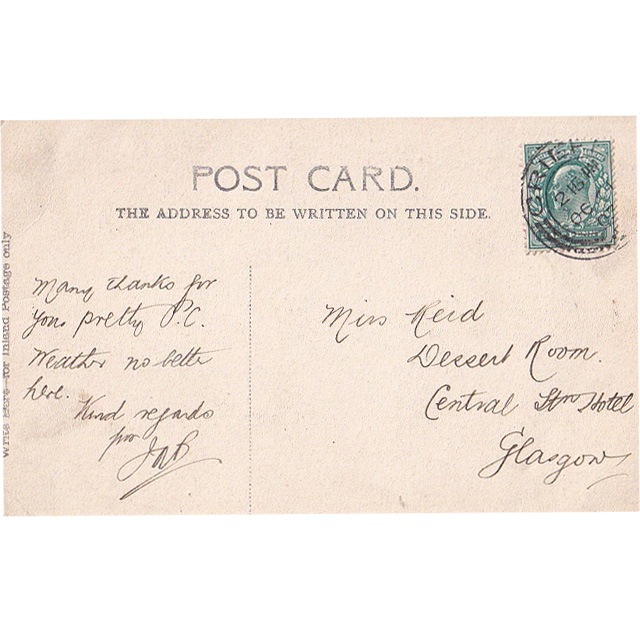 POST CARD.
THE ADDRESS TO BE WRITTEN ON THIS SIDE.
Write Here—for Inland Postage only
Many thanks for
your pretty P.C.
Weather no better
here.
Kind regards
Miss Reid
Dessert Room.
Central Stn Hotel
Glasgow